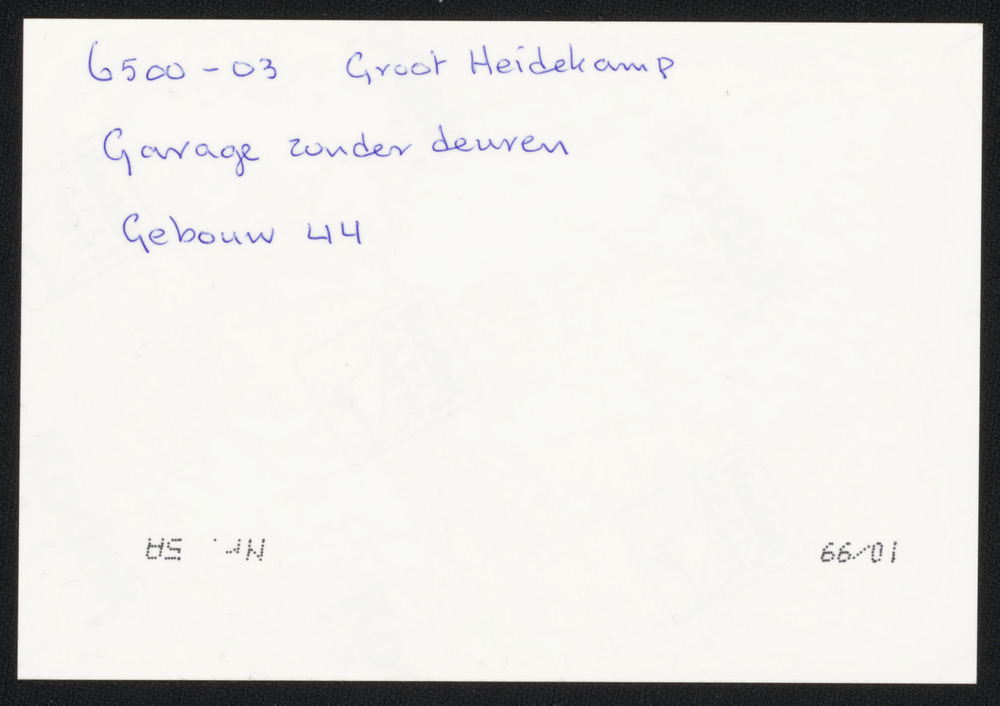 6500-03 Groot Heidekamp
Garage zonder deuren
Gebouw 44
10/99 Nr. 5A